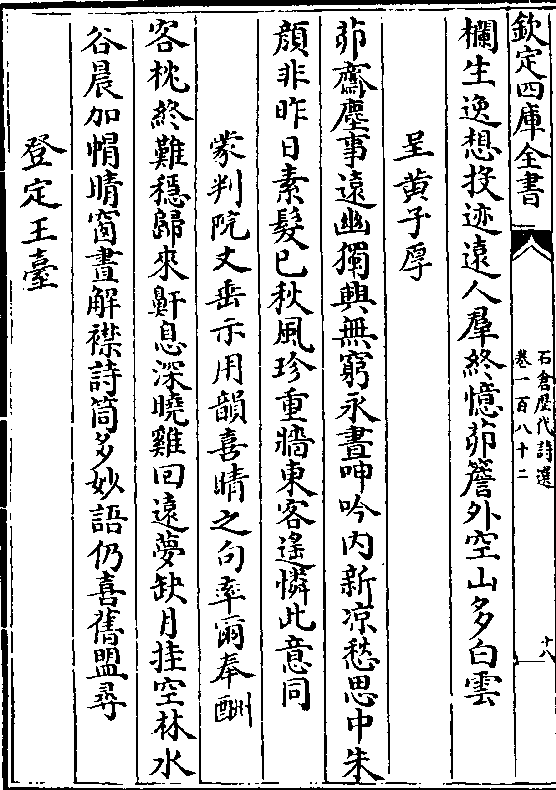 欽定四庫全書
石倉歴代詩選
卷一百八十二
十八
欄生逸想投迹遠人羣終憶茆簷外空山多白雲
呈黄子厚
茆齋塵事遠幽獨興無窮永晝呻吟内新凉愁思中朱
顔非昨日素髮已秋風珍重牆東客遙憐此意同
蒙判院丈垂示用韻喜晴之句率爾奉酬
客枕終難穩歸來鼾息深曉雞回遠夢缺月挂空林水
谷晨加㡌晴窗晝解襟詩筒多妙語仍喜舊盟尋
登定王臺